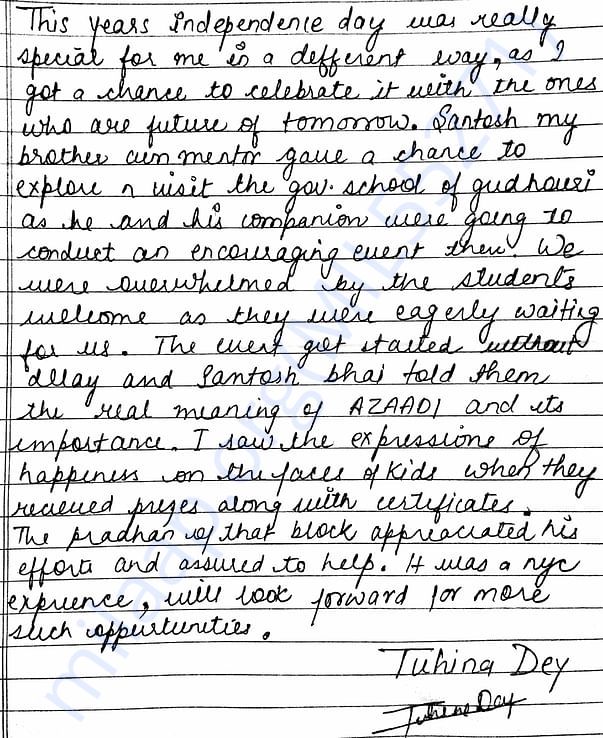 This years Independence day was really
special for me in a defferent way, as I
got a chance to celebrate it with the ones
who are future of tomorrow. Santosh my
brother cum mentor gave a chance to
explore n visit the gov. school of gudhouri
as he and his companion were going to
conduct an encouraging event there. We
were overwhelmed by the students
welcome as they were eagerly waiting
for us. The event get started without
dElay and Santosh bhai told them
the real meaning of AZAADI and its
importance. I saw the expressions of
happiness on the faces of kids when they
recieved prizes along with certificates.
The pradhan of that block appreaciated his
efforts and assured to help. It was a nyc
exprience, will look forward for more
such oppurtunities.
Tuhina Dey
Tuhina Dey
milaap.org/MIL